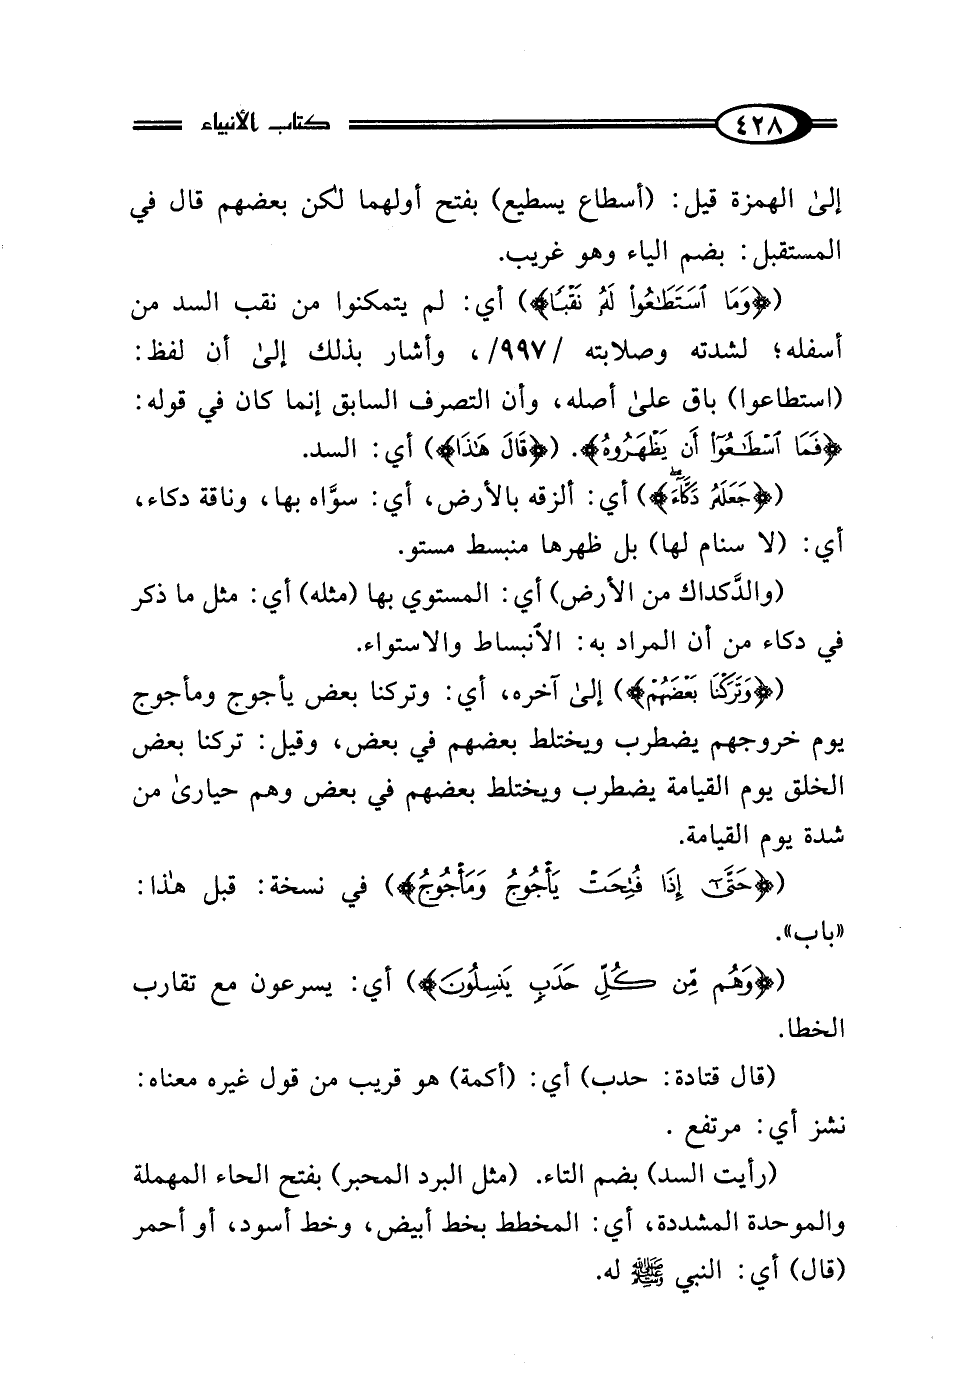 ٤٢٨ كتاب الأنبياء
إلىٰ الهمزة قيل: (أسطاع يسطيع) بفتح أولهما لكن بعضهم قال في
المستقبل: بضم الياء وهو غريب.
(﴿وَمَا ٱسْتَطَٰعُوا۟ لَهُۥ نَقْبًا﴾) أي: لم يتمكنوا من نقب السد من
أسفله؛ لشدته وصلابته /٩٩٧/، وأشار بذلك إلىٰ أن لفظ:
(استطاعوا) باق علىٰ أصله، وأن التصرف السابق إنما كان في قوله:
﴿فَمَا ٱسْطَٰعُوٓا۟ أَن يَظْهَرُوهُ﴾. (﴿قَالَ هَٰذَا﴾) أي: السد.
(﴿جَعَلَهُۥ دَكَّآءَ﴾) أي: ألزقه بالأرض، أي: سوَّاه بها، وناقة دكاء،
أي: (لا سنام لها) بل ظهرها منبسط مستو.
(والدَّكداك من الأرض) أي: المستوي بها (مثله) أي: مثل ما ذكر
في دكاء من أن المراد به: الأنبساط والاستواء.
(﴿وَتَرَكْنَا بَعْضَهُمْ﴾) إلىٰ آخره، أي: وتركنا بعض يأجوج ومأجوج
يوم خروجهم يضطرب ويختلط بعضهم في بعض، وقيل: تركنا بعض
الخلق يوم القيامة يضطرب ويختلط بعضهم في بعض وهم حيارىٰ من
شدة يوم القيامة.
(﴿حَتَّىٰٓ إِذَا فُتِحَتْ يَأْجُوجُ وَمَأْجُوجُ﴾) في نسخة: قبل هٰذا:
«باب».
(﴿وَهُم مِّن كُلِّ حَدَبٍ يَنسِلُونَ﴾) أي: يسرعون مع تقارب
الخطا.
(قال قتادة: حدب) أي: (أكمة) هو قريب من قول غيره معناه:
نشز أي: مرتفع .
(رأيت السد) بضم التاء. (مثل البرد المحبر) بفتح الحاء المهملة
والموحدة المشددة، أي: المخطط بخط أبيض، وخط أسود، أو أحمر
(قال) أي: النبي ﷺ له.